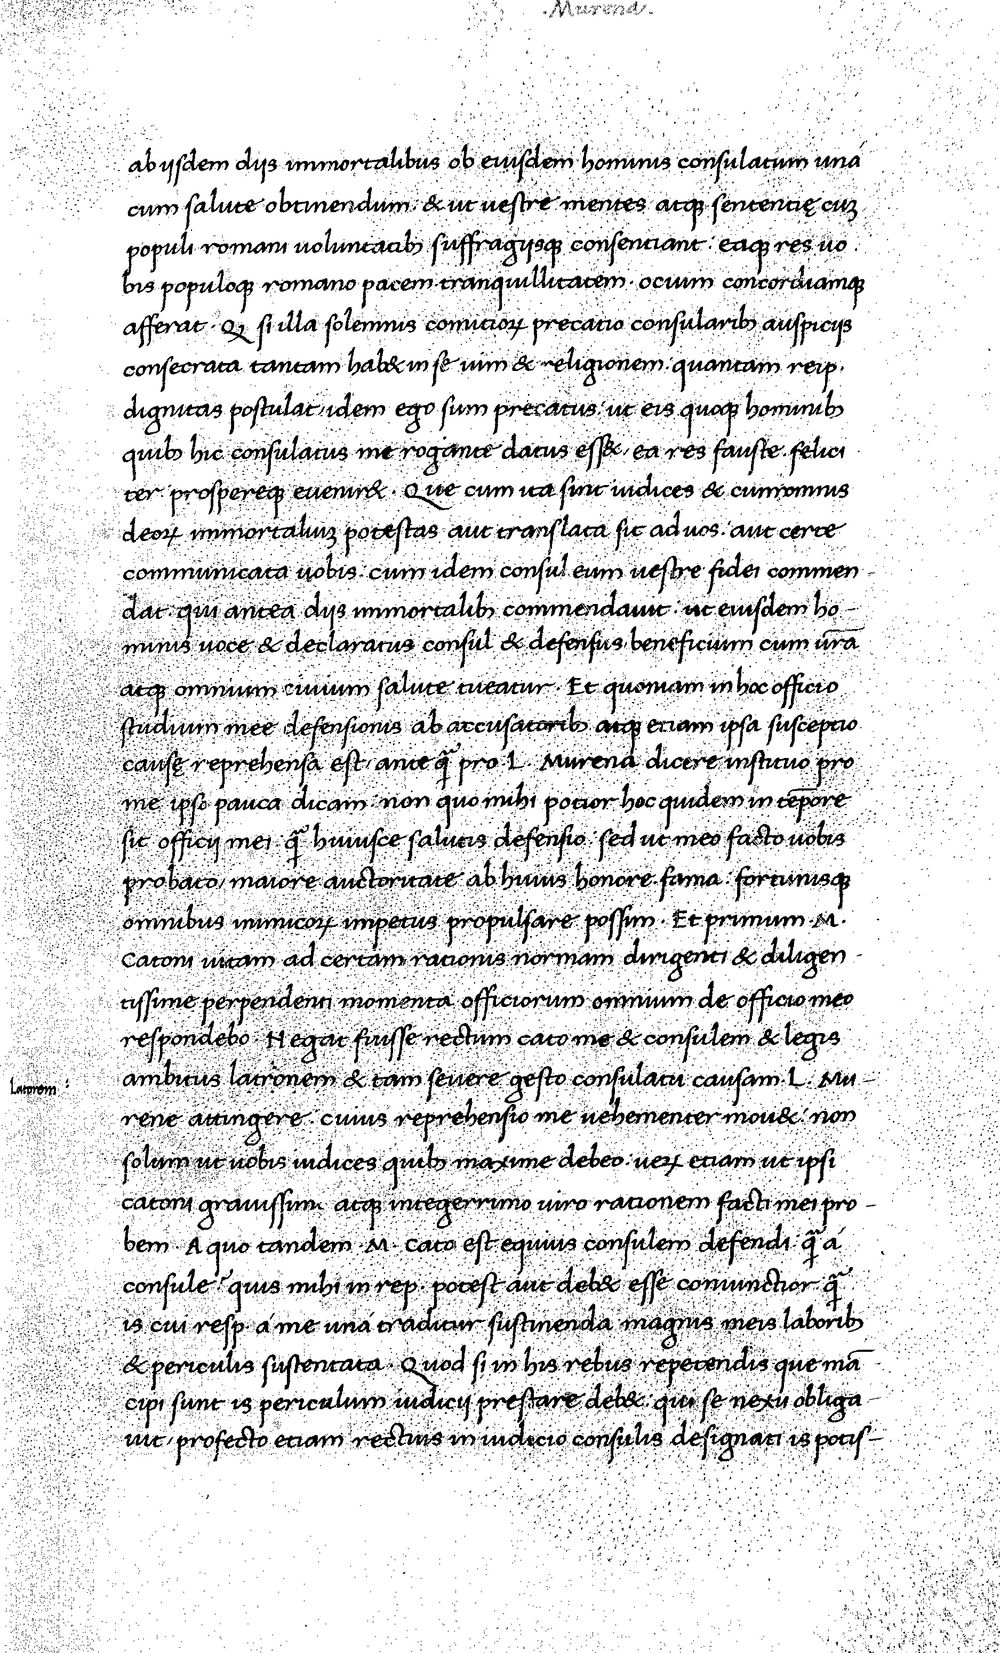 .Murena.
ab ijsdem dijs immortalibus ob eiusdem hominis consulatum unà
cum salute obtinendum. & ut uestre mentes atqꝫ sententię cuꝫ
populi romani uoluntatibꝫ suffragijsqꝫ consentiant. eaqꝫ res uo.
bis populoqꝫ romano pacem tranquillitatem. ocium concordiamqꝫ
afferat. Qꝫ si illa solemnis comitioꝝ precatio consularibꝫ auspicijs
consecrata tantam hab& in se uim & religionem. quantam reip.
dignitas postulat/ idem ego sum precatus. ut eis quoqꝫ hominibꝫ
quibꝫ hic consulatus me rogante datus ess&/ ea res fauste. felici
ter prospereqꝫ euenir&. Que cum ita sint iudices & cum omnis
deoꝝ immortaliuꝫ potestas aut translata sit ad uos. aut certe
communicata uobis. cum idem consul eum uestre fidei commen-
dat. qui antea dijs immortalibꝫ commendauit. ut eiusdem ho-
minis uoce & declaratus consul & defensus beneficium cum ūrā
atqꝫ omnium ciuium salute tueatur. Et quoniam in hoc officio
studium mee defensionis ab accusatoribꝫ atqꝫ etiam ipsa susceptio
causę reprehensa est/ ante q̃ pro L. Murena dicere instituo pro
me ipso pauca dicam. non quo mihi potior hoc quidem in tēpore
sit officij mei q̃ huiusce salutis defensio. sed ut meo facto uobis
probato/ maiore auctoritate ab huius honore. fama. fortunisqꝫ
omnibus inimicoꝝ impetus propulsare possim. Et primum M.
Catoni uitam ad certam rationis normam dirigenti & diligen-
tissime perpendenti momenta officiorum omnium de officio meo
respondebo. Negat fuisse rectum cato me & consulem & legis
Latorem:
ambitus latronem & tam seuere gesto consulatu causam L. Mu-
rene attingere. cuius reprehensio me uehementer mou&. non
solum ut uobis iudices quibꝫ maxime debeo. ueꝝ etiam ut ipsi
catoni grauissimo atqꝫ integerrimo uiro rationem facti mei pro-
bem. A quo tandem M. cato est equius consulem defendi q̃ à
consule? quis mihi in rep. potest aut deb& esse coniunctior q̃
is cui resp. à me unà traditur sustinenda magnis meis laboribꝫ
& periculis sustentata. Quod si in his rebus repetendis que mā
cipi sunt is periculum iudicij prestare deb&. qui se nexu obliga-
uit/ profecto etiam rectius in iudicio consulis designati is potis-